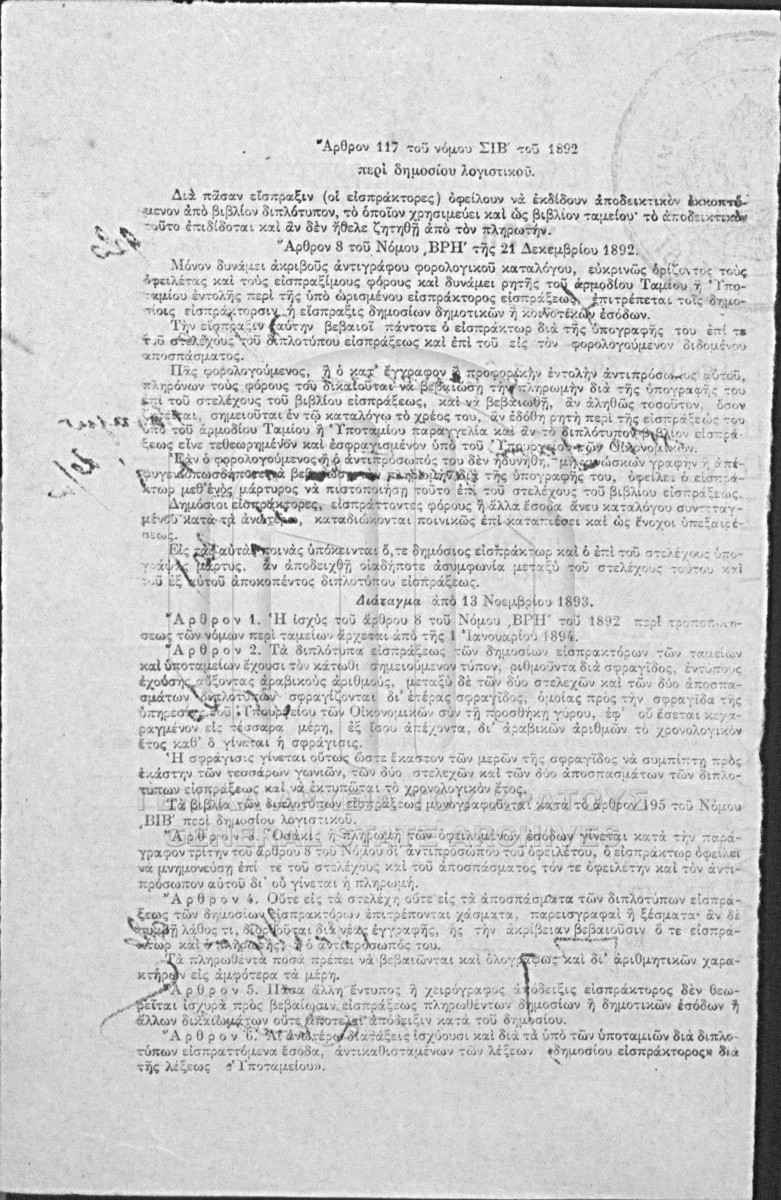 Ἄρθρον 117 τοῦ νόμου ΣΙΒʹ τοῦ 1892
περὶ δημοσίου λογιστικοῦ.
Διὰ πᾶσαν εἴσπραξιν (οἱ εἰσπράκτορες) ὀφείλουν νὰ ἐκδίδουν ἀποδεικτικὸν ἐκκοπτό-
μενον ἀπὸ βιβλίον διπλότυπον, τὸ ὁποῖον χρησιμεύει καὶ ὡς βιβλίον ταμείου· τὸ ἀποδεικτικὸν
τοῦτο ἐπιδίδοται καὶ ἂν δὲν ἤθελε ζητηθῇ ἀπὸ τὸν πληρωτήν.
Ἄρθρον 8 τοῦ Νόμου ͵ΒΡΗʹ τῆς 21 Δεκεμβρίου 1892.
Μόνον δυνάμει ἀκριβοῦς ἀντιγράφου φορολογικοῦ καταλόγου, εὐκρινῶς ὁρίζοντος τοὺς
ὀφειλέτας καὶ τοὺς εἰσπραξίμους φόρους καὶ δυνάμει ρητῆς τοῦ ἁρμοδίου Ταμίου ἢ Ὑπο-
ταμίου ἐντολῆς περὶ τῆς ὑπὸ ὡρισμένου εἰσπράκτορος εἰσπράξεως, ἐπιτρέπεται τοῖς δημο-
σίοις εἰσπράκτορσιν ἡ εἴσπραξις δημοσίων δημοτικῶν ἢ κοινοτικῶν ἐσόδων.
Τὴν εἴσπραξιν αὐτὴν βεβαιοῖ πάντοτε ὁ εἰσπράκτωρ διὰ τῆς ὑπογραφῆς του ἐπί τε
τοῦ στελέχους τοῦ διπλοτύπου εἰσπράξεως καὶ ἐπὶ τοῦ εἰς τὸν φορολογούμενον διδομένου
ἀποσπάσματος.
Πᾶς φορολογούμενος, ἢ ὁ κατ' ἔγγραφον ἢ προφορικὴν ἐντολὴν ἀντιπρόσωπος αὐτοῦ,
πληρόνων τοὺς φόρους του δικαιοῦται νὰ βεβαιώσῃ τὴν πληρωμὴν διὰ τῆς ὑπογραφῆς του
ἐπὶ τοῦ στελέχους τοῦ βιβλίου εἰσπράξεως, καὶ νὰ βεβαιωθῇ, ἂν ἀληθῶς τοσοῦτον, ὅσον
ζητεῖται, σημειοῦται ἐν τῷ καταλόγῳ τὸ χρέος του, ἂν ἐδόθη ρητὴ περὶ τῆς εἰσπράξεώς του
ὑπὸ τοῦ ἁρμοδίου Ταμίου ἢ Ὑποταμίου παραγγελία καὶ ἂν τὸ διπλότυπον βιβλίον εἰσπρά-
ξεως εἶνε τεθεωρημένον καὶ ἐσφραγισμένον ὑπὸ τοῦ Ὑπουργείου τῶν Οἰκονομικῶν.
Ἐὰν ὁ φορολογούμενος ἢ ὁ ἀντιπρόσωπός του δὲν ἠδυνήθη, μὴ γινώσκων γραφὴν ἢ ἀπέ-
φυγεν ὁπωσδήποτε νὰ βεβαιώσῃ τὴν πληρωμὴν διὰ τῆς ὑπογραφῆς του, ὀφείλει ὁ εἰσπρά-
κτωρ μεθ' ἑνὸς μάρτυρος νὰ πιστοποιήσῃ τοῦτο ἐπὶ τοῦ στελέχους τοῦ βιβλίου εἰσπράξεως.
Δημόσιοι εἰσπράκτορες, εἰσπράττοντες φόρους ἢ ἄλλα ἔσοδα ἄνευ καταλόγου συντεταγ-
μένου κατὰ τὰ ἀνωτέρω, καταδιώκονται ποινικῶς ἐπὶ καταπιέσει καὶ ὡς ἔνοχοι ὑπεξαιρέ-
σεως.
Εἰς τὰς αὐτὰς ποινὰς ὑπόκεινται ὅ,τε δημόσιος εἰσπράκτωρ καὶ ὁ ἐπὶ τοῦ στελέχους ὑπο-
γράψας μάρτυς, ἂν ἀποδειχθῇ οἱαδήποτε ἀσυμφωνία μεταξὺ τοῦ στελέχους τούτου καὶ
τοῦ ἐξ αὐτοῦ ἀποκοπέντος διπλοτύπου εἰσπράξεως.
Διάταγμα ἀπὸ 13 Νοεμβρίου 1893.
Ἄρθρον 1. Ἡ ἰσχὺς τοῦ ἄρθρου 8 τοῦ Νόμου ͵ΒΡΗʹ τοῦ 1892 περὶ τροποποιή-
σεως τῶν νόμων περὶ ταμείων ἄρχεται ἀπὸ τῆς 1 Ἰανουαρίου 1894.
Ἄρθρον 2. Τὰ διπλότυπα εἰσπράξεως τῶν δημοσίων εἰσπρακτόρων τῶν ταμείων
καὶ ὑποταμείων ἔχουσι τὸν κάτωθι σημειούμενον τύπον, ριθμοῦνται διὰ σφραγῖδος, ἐντύπους
ἐχούσης αὔξοντας ἀραβικοὺς ἀριθμούς, μεταξὺ δὲ τῶν δύο στελεχῶν καὶ τῶν δύο ἀποσπα-
σμάτων διπλοτύπων σφραγίζονται δι' ἑτέρας σφραγῖδος, ὁμοίας πρὸς τὴν σφραγῖδα τῆς
ὑπηρεσίας τοῦ Ὑπουργείου τῶν Οἰκονομικῶν σὺν τῇ προσθήκῃ γύρου, ἐφ' οὗ ἔσεται κεχα-
ραγμένον εἰς τέσσαρα μέρη, ἐξ ἴσου ἀπέχοντα, δι' ἀραβικῶν ἀριθμῶν τὸ χρονολογικὸν
ἔτος καθ' ὃ γίνεται ἡ σφράγισις.
Ἡ σφράγισις γίνεται οὕτως ὥστε ἕκαστον τῶν μερῶν τῆς σφραγῖδος νὰ συμπίπτῃ πρὸς
ἑκάστην τῶν τεσσάρων γωνιῶν, τῶν δύο στελεχῶν καὶ τῶν δύο ἀποσπασμάτων τῶν διπλο-
τύπων εἰσπράξεως καὶ νὰ ἐκτυπῶται τὸ χρονολογικὸν ἔτος.
Τὰ βιβλία τῶν διπλοτύπων εἰσπράξεως μονογραφοῦνται κατὰ τὸ ἄρθρον 195 τοῦ Νόμου
͵ΒΙΒʹ περὶ δημοσίου λογιστικοῦ.
Ἄρθρον 3. Ὁσάκις ἡ πληρωμὴ τῶν ὀφειλομένων ἐσόδων γίνεται κατὰ τὴν παρά-
γραφον τρίτην τοῦ ἄρθρου 8 τοῦ Νόμου δι' ἀντιπροσώπου τοῦ ὀφειλέτου, ὁ εἰσπράκτωρ ὀφείλει
νὰ μνημονεύσῃ ἐπί τε τοῦ στελέχους καὶ τοῦ ἀποσπάσματος τόν τε ὀφειλέτην καὶ τὸν ἀντι-
πρόσωπον αὐτοῦ δι' οὗ γίνεται ἡ πληρωμή.
Ἄρθρον 4. Οὔτε εἰς τὰ στελέχη οὔτε εἰς τὰ ἀποσπάσματα τῶν διπλοτύπων εἰσπρά-
ξεως τῶν δημοσίων εἰσπρακτόρων ἐπιτρέπονται χάσματα, παρεισγραφαὶ ἢ ξέσματα· ἂν δὲ
συμβῇ λάθος τι, διορθοῦται διὰ νέας ἐγγραφῆς, ἧς τὴν ἀκρίβειαν βεβαιοῦσιν ὅ τε εἰσπρά-
κτωρ καὶ ὁ πληρωτής, ἢ ὁ ἀντιπρόσωπός του.
Τὰ πληρωθέντα ποσὰ πρέπει νὰ βεβαιῶνται καὶ ὁλογράφως καὶ δι' ἀριθμητικῶν χαρα-
κτήρων εἰς ἀμφότερα τὰ μέρη.
Ἄρθρον 5. Πᾶσα ἄλλη ἔντυπος ἢ χειρόγραφος ἀπόδειξις εἰσπράκτορος δὲν θεω-
ρεῖται ἰσχυρὰ πρὸς βεβαίωσιν εἰσπράξεως πληρωθέντων δημοσίων ἢ δημοτικῶν ἐσόδων ἢ
ἄλλων δικαιωμάτων οὔτε ἀποτελεῖ ἀπόδειξιν κατὰ τοῦ δημοσίου.
Ἄρθρον 6. Αἱ ἀνωτέρω διατάξεις ἰσχύουσι καὶ διὰ τὰ ὑπὸ τῶν ὑποταμιῶν διὰ διπλο-
τύπων εἰσπραττόμενα ἔσοδα, ἀντικαθισταμένων τῶν λέξεων «δημοσίου εἰσπράκτορος» διὰ
τῆς λέξεως «Ὑποταμείου».